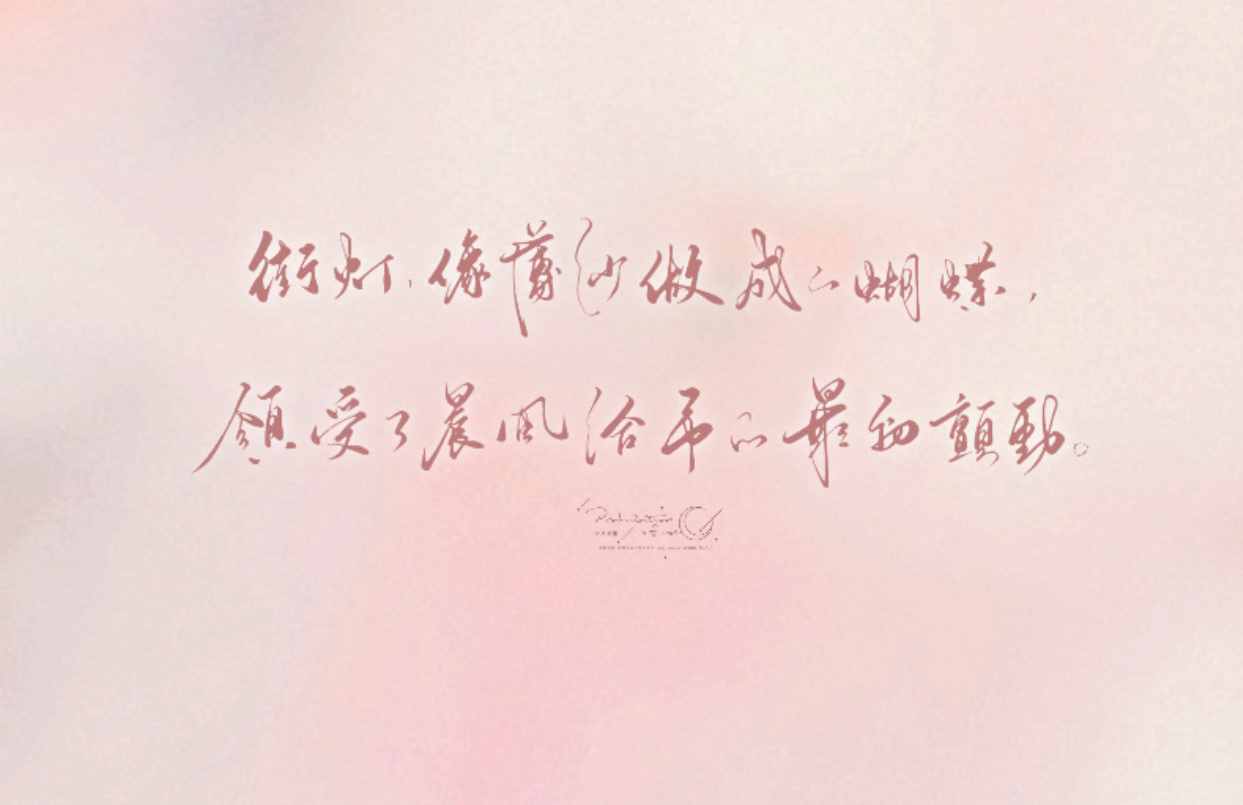 街灯，像薄纱做成的蝴蝶，
领受了晨风给予的最初颤动。